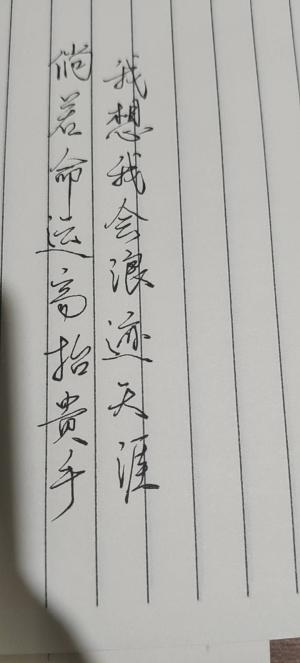 我想我会浪迹天涯
倘若命运高抬贵手